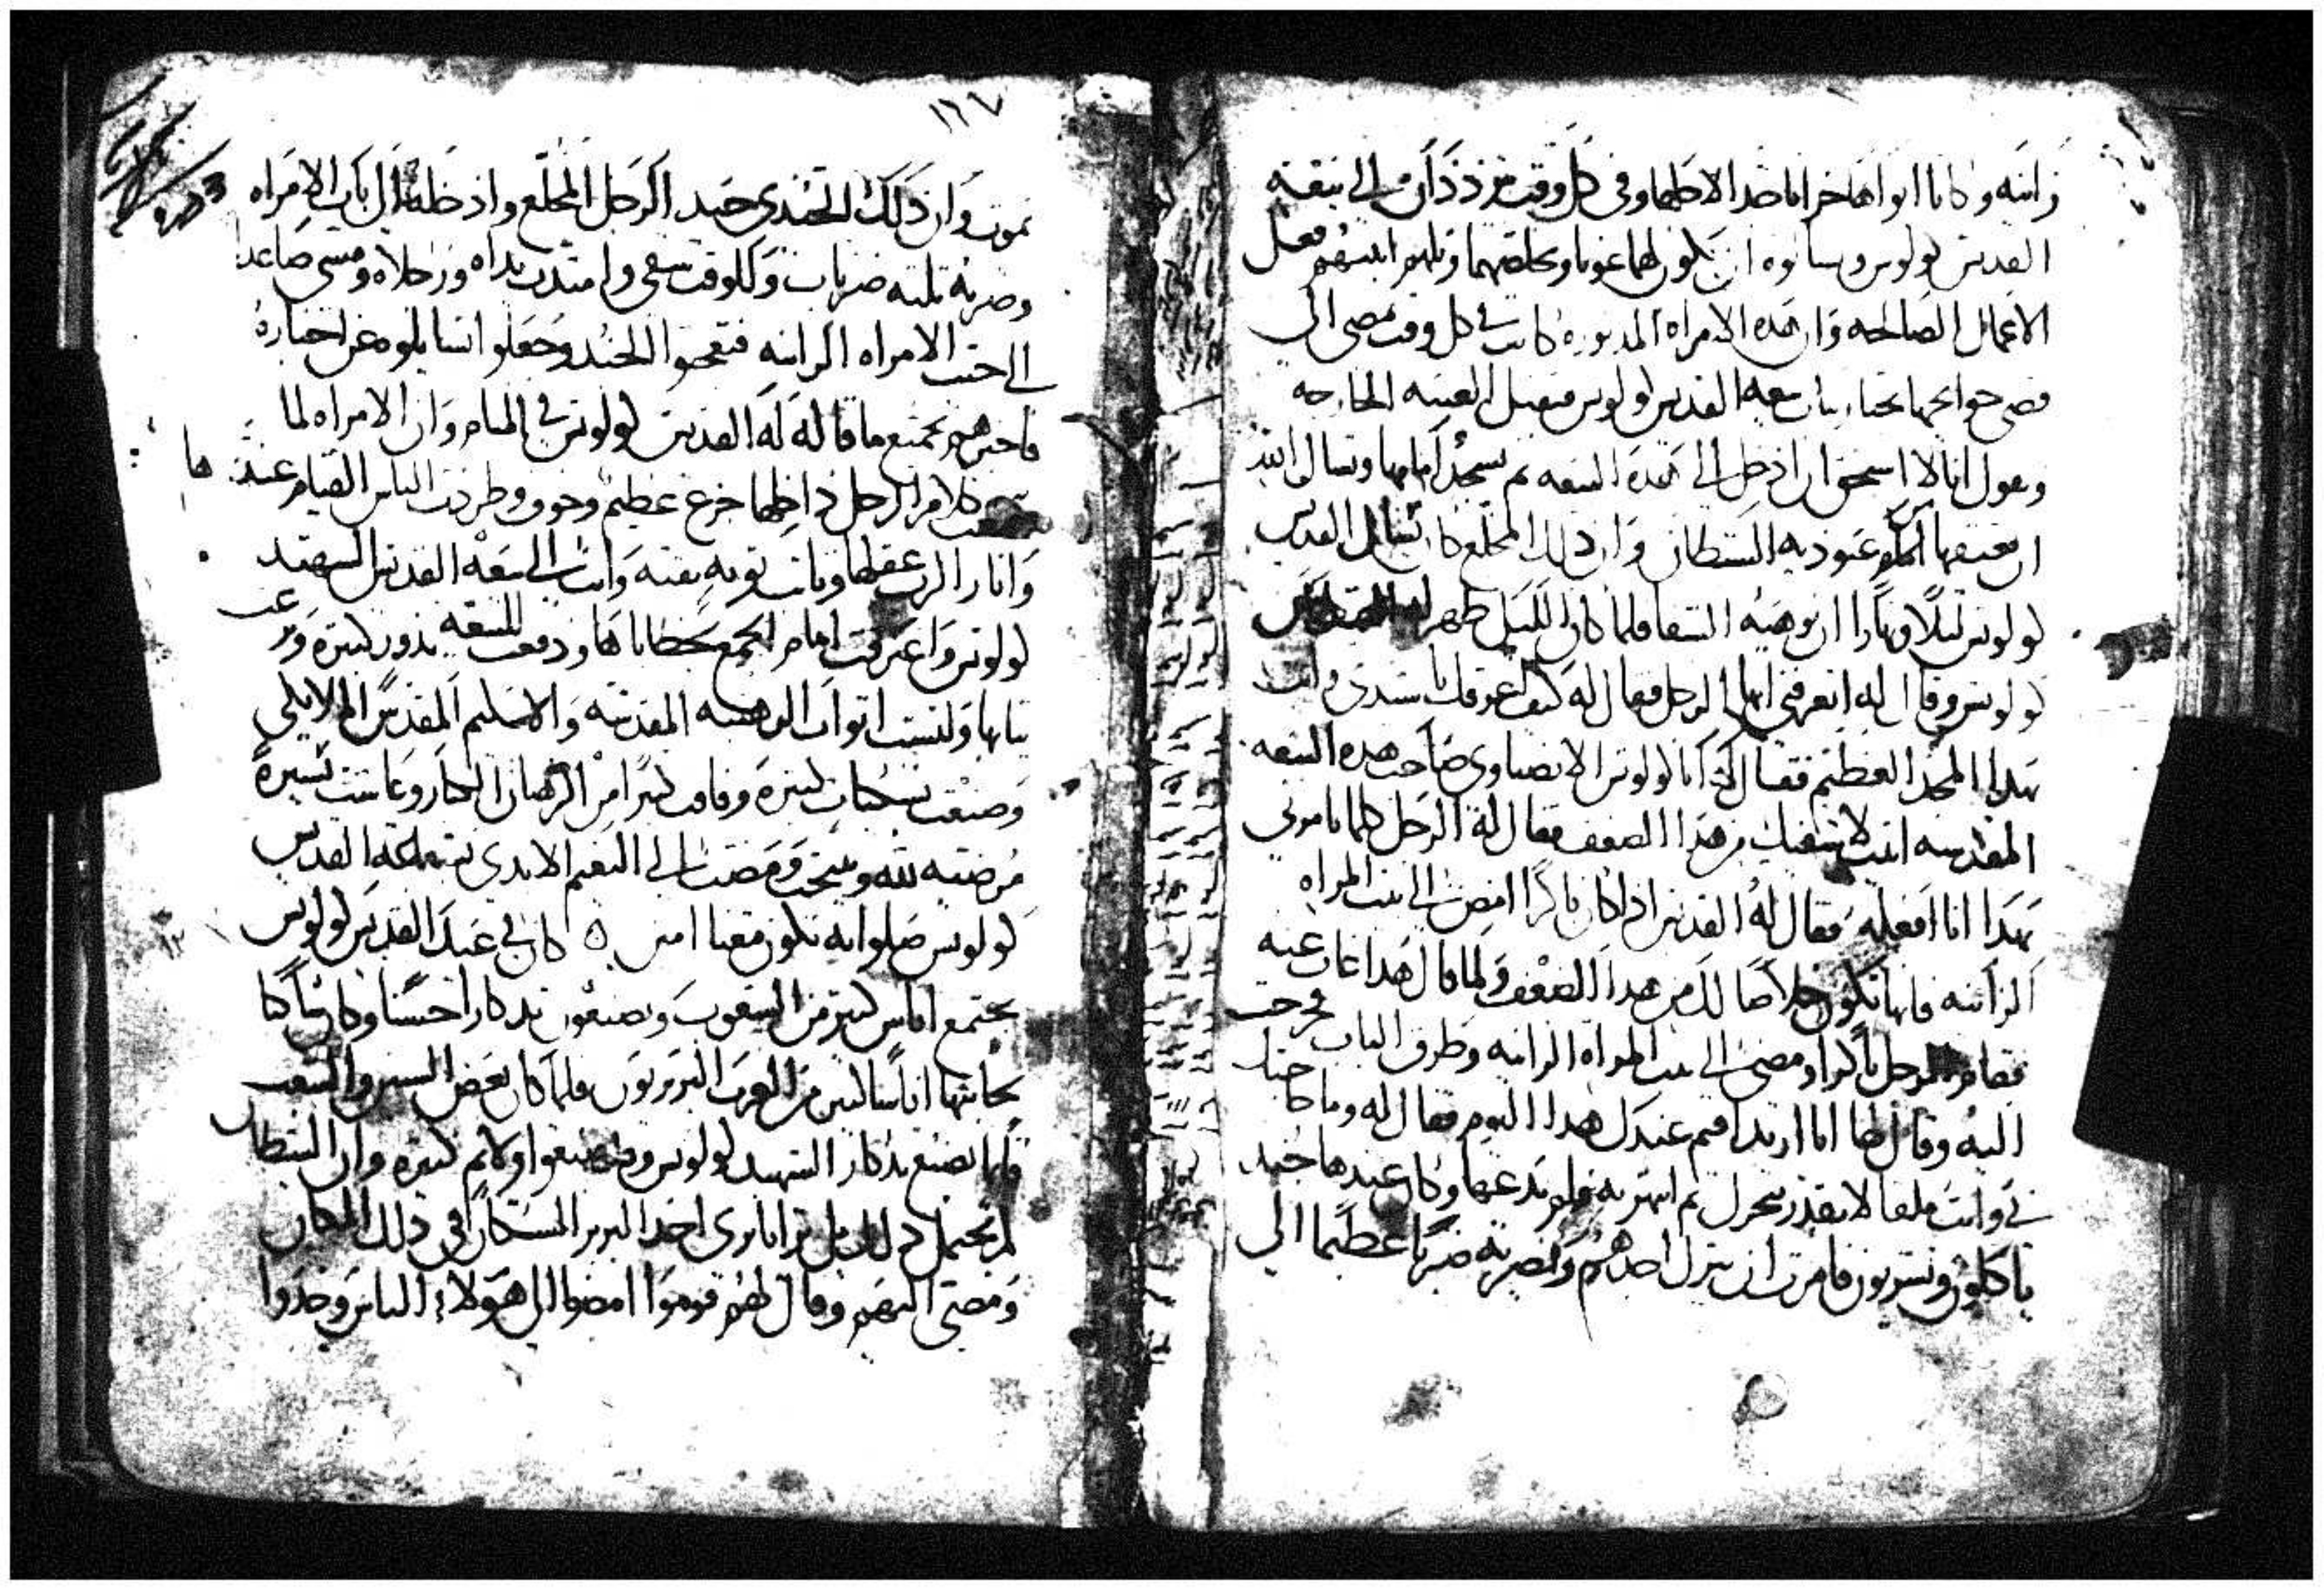 زانيه وكانا ابواها خزانا جدا لاجلها وفي كل وقت يترددان الى بيعة
القديس لولوس ويسالوه ان يكون لهما عونا ويخلصهما ويلهم ابنتهم فعل
الاعمال الصالحه وان هده الامراه المدبوره كانت في كل وقت تمضي الى
قضي حوايجها تجتاز بباب بيعه القديس لولوس فتقبل العتبه الخارجه
وتقول انا لا استحق ان ادخل الى هده البيعه ثم تسجد امامها وتسال الله
ان يعتقها من عبوديه الشيطان وان دلك المخلع كان يسايل القديس
لولوس ليلا ونهارا ان يوهبه الشفا فلما كان الليل ظهر له القديس
لولوس وقال له اتعرفني ايها الرجل فقال له كيف اعرفك يا سيدي وانت
بهدا المجد العظيم فقال له انا لولوس الانصناوي صاحب هده البيعه
المقدسه اتيت لاشفيك من هدا الضعف فقال له الرجل كلما تامرني
بهدا انا افعله فقال له القديس ادا كان باكرا امض الى بيت المراه
الزانيه فانها تكون خلاصا لك من هدا الضعف ولما قال هدا غاب عنه
فقام الرجل باكرا ومضى الى بيت المراه الزانيه وطرق الباب فخرجت
اليه وقال لها انا اريد اقيم عندك هدا اليوم فقال له وما حاجتك
في وانت ملقا لا تقدر تتحرك ثم انتهرته فلم يدعها وكان عندها جنيد
ياكلون ويشربون فامرت ان ينزل احدهم ويضربه ضربا عظيما الى
١٢٧
يموت وان دلك الجندي جبد الرجل المخلع واد خلفه الى باب الامراه
وضربه تلته ضربات وللوقت شفي وامتدت يداه ورجلاه ومشى صاعدا
الى حيت الامراه الزانيه فتعجبوا الجند وجعلوا يسايلوه عن اخباره
فاخبرهم بجميع ما قاله له القديس لولوس في المنام وان الامراه لما
سمعت كلام الرجل داخلها جزع عظيم وخوف وطردت الناس القيام عندها
وانار الرب عقلها وتابت توبه نقيه واتت الى بيعة القديس الشهيد
لولوس واعترفت امام الجمع بخطاياها ودفعت للبيعه ندور كتيره
تيابها ولبست اتواب الرهبنه المقدسه والاسكيم المقدس الملايكي
وصنعت نسكيات كتيره وفاقت كتيرا من الرهبان الكبار وعاشت سيرة
مرضيه لله وتنيحت ومضت الى النعيم الابدي بشفاعة القديس
لولوس صلواته تكون معنا امين ه كان في عيد القديس لولوس
يجتمع اناس كتير من الشعوب ويصنعون تدكارا حسنا وكان ساكنا
بجانبها اناسا كتير من العرب البربريون فلما كان بعض السنين والشعب
قايما يصنع تدكار الشهيد لولوس وقد صنعوا ولايم كتيره وان الشيطان
لم يحتمل دلك بل تزايا بزي احد البربر السكان في دلك المكان
ومضى اليهم وقال لهم قوموا امضوا الى هولاء الناس وخدوا